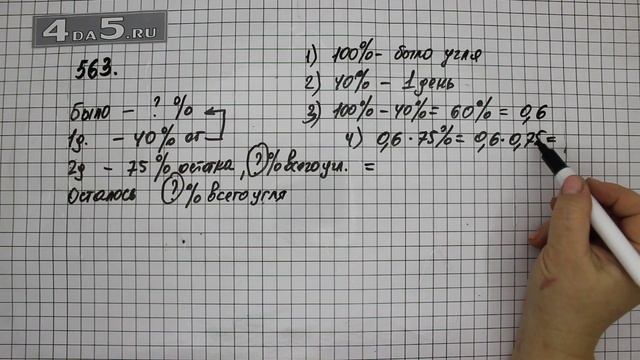 4DA5.RU
563.
Было – ? %
1д. – 40% от
2д – 75% остатка, ? % всего уг.
Осталось ? % всего угля
1) 100% – было угля
2) 40% – 1 день
3) 100% – 40% = 60% = 0,6
4) 0,6 · 75% = 0,6 · 0,75 =
=